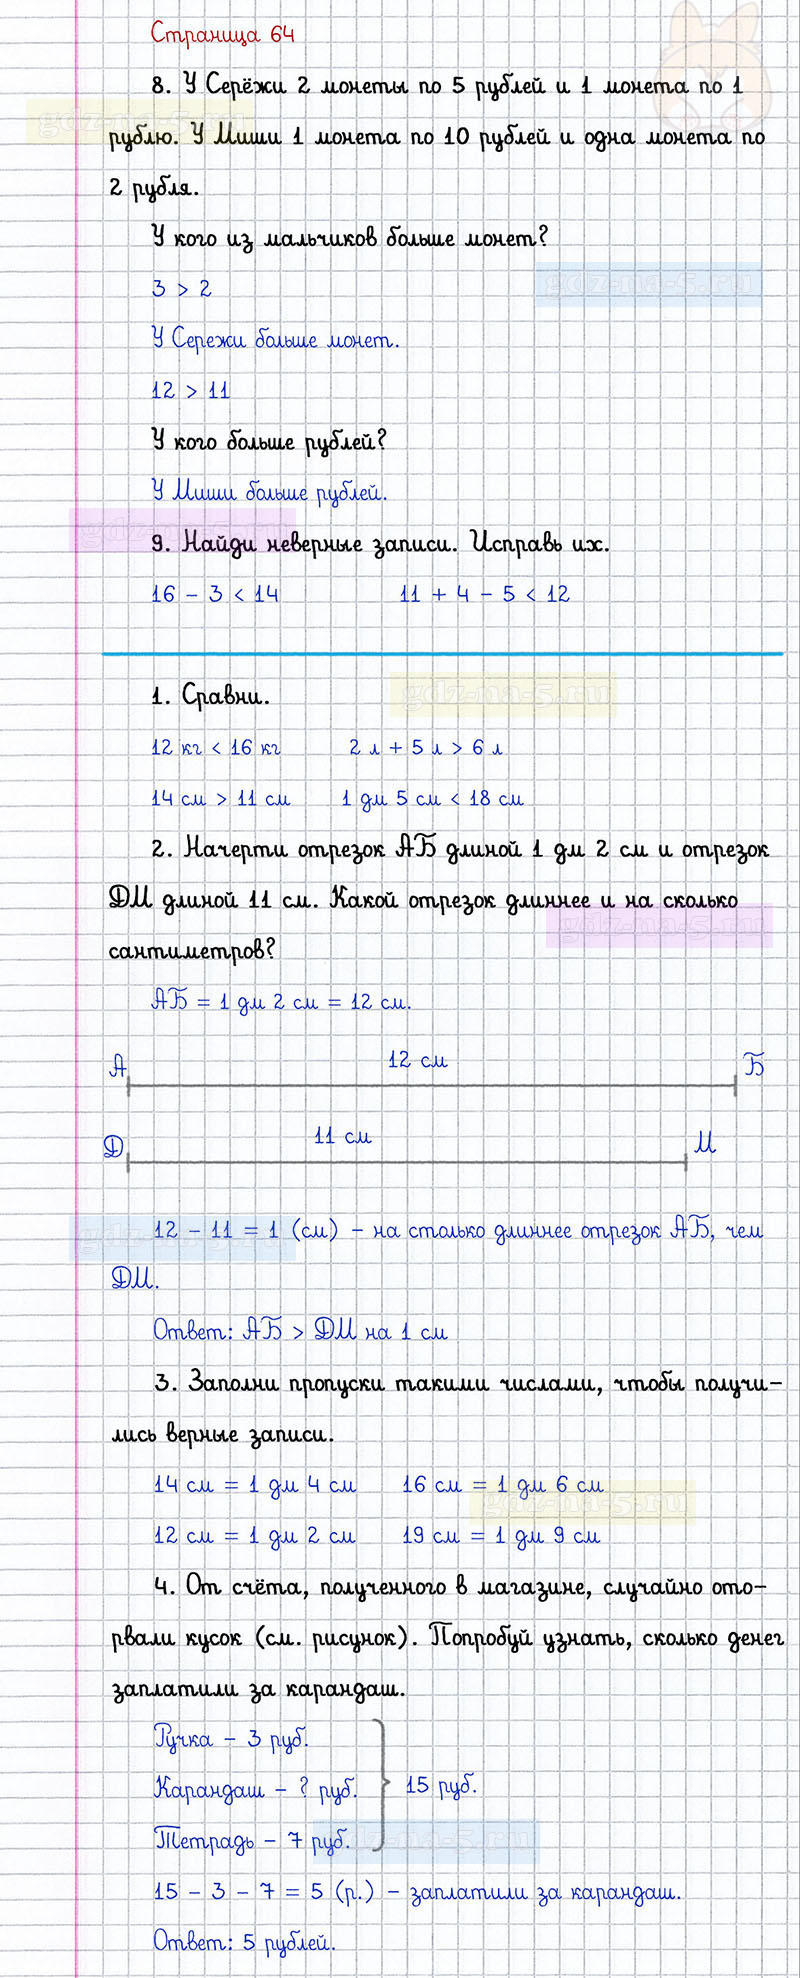 Страница 64
8. У Серёжи 2 монеты по 5 рублей и 1 монета по 1
рублю. У Миши 1 монета по 10 рублей и одна монета по
2 рубля.
У кого из мальчиков больше монет?
3 > 2
gdz-na-5.ru
У Сережи больше монет.
12 > 11
У кого больше рублей?
У Миши больше рублей.
9. Найди неверные записи. Исправь их.
16 - 3 < 14 11 + 4 - 5 < 12
1. Сравни.
gdz-na-5.ru
12 кг < 16 кг 2 л + 5 л > 6 л
14 см > 11 см 1 дм 5 см < 18 см
2. Начерти отрезок АБ длиной 1 дм 2 см и отрезок
ДМ длиной 11 см. Какой отрезок длиннее и на сколько
gdz-na-5.ru
сантиметров?
АБ = 1 дм 2 см = 12 см.
А 12 см Б
Д 11 см М
12 - 11 = 1 (см) - на столько длиннее отрезок АБ, чем
gdz-na-5.ru
ДМ.
Ответ: АБ > ДМ на 1 см
3. Заполни пропуски такими числами, чтобы получи-
лись верные записи.
14 см = 1 дм 4 см 16 см = 1 дм 6 см
gdz-na-5.ru
12 см = 1 дм 2 см 19 см = 1 дм 9 см
4. От счёта, полученного в магазине, случайно ото-
рвали кусок (см. рисунок). Попробуй узнать, сколько денег
заплатили за карандаш.
Ручка - 3 руб.
Карандаш - ? руб. 15 руб.
Тетрадь - 7 руб.
gdz-na-5.ru
15 - 3 - 7 = 5 (р.) - заплатили за карандаш.
Ответ: 5 рублей.